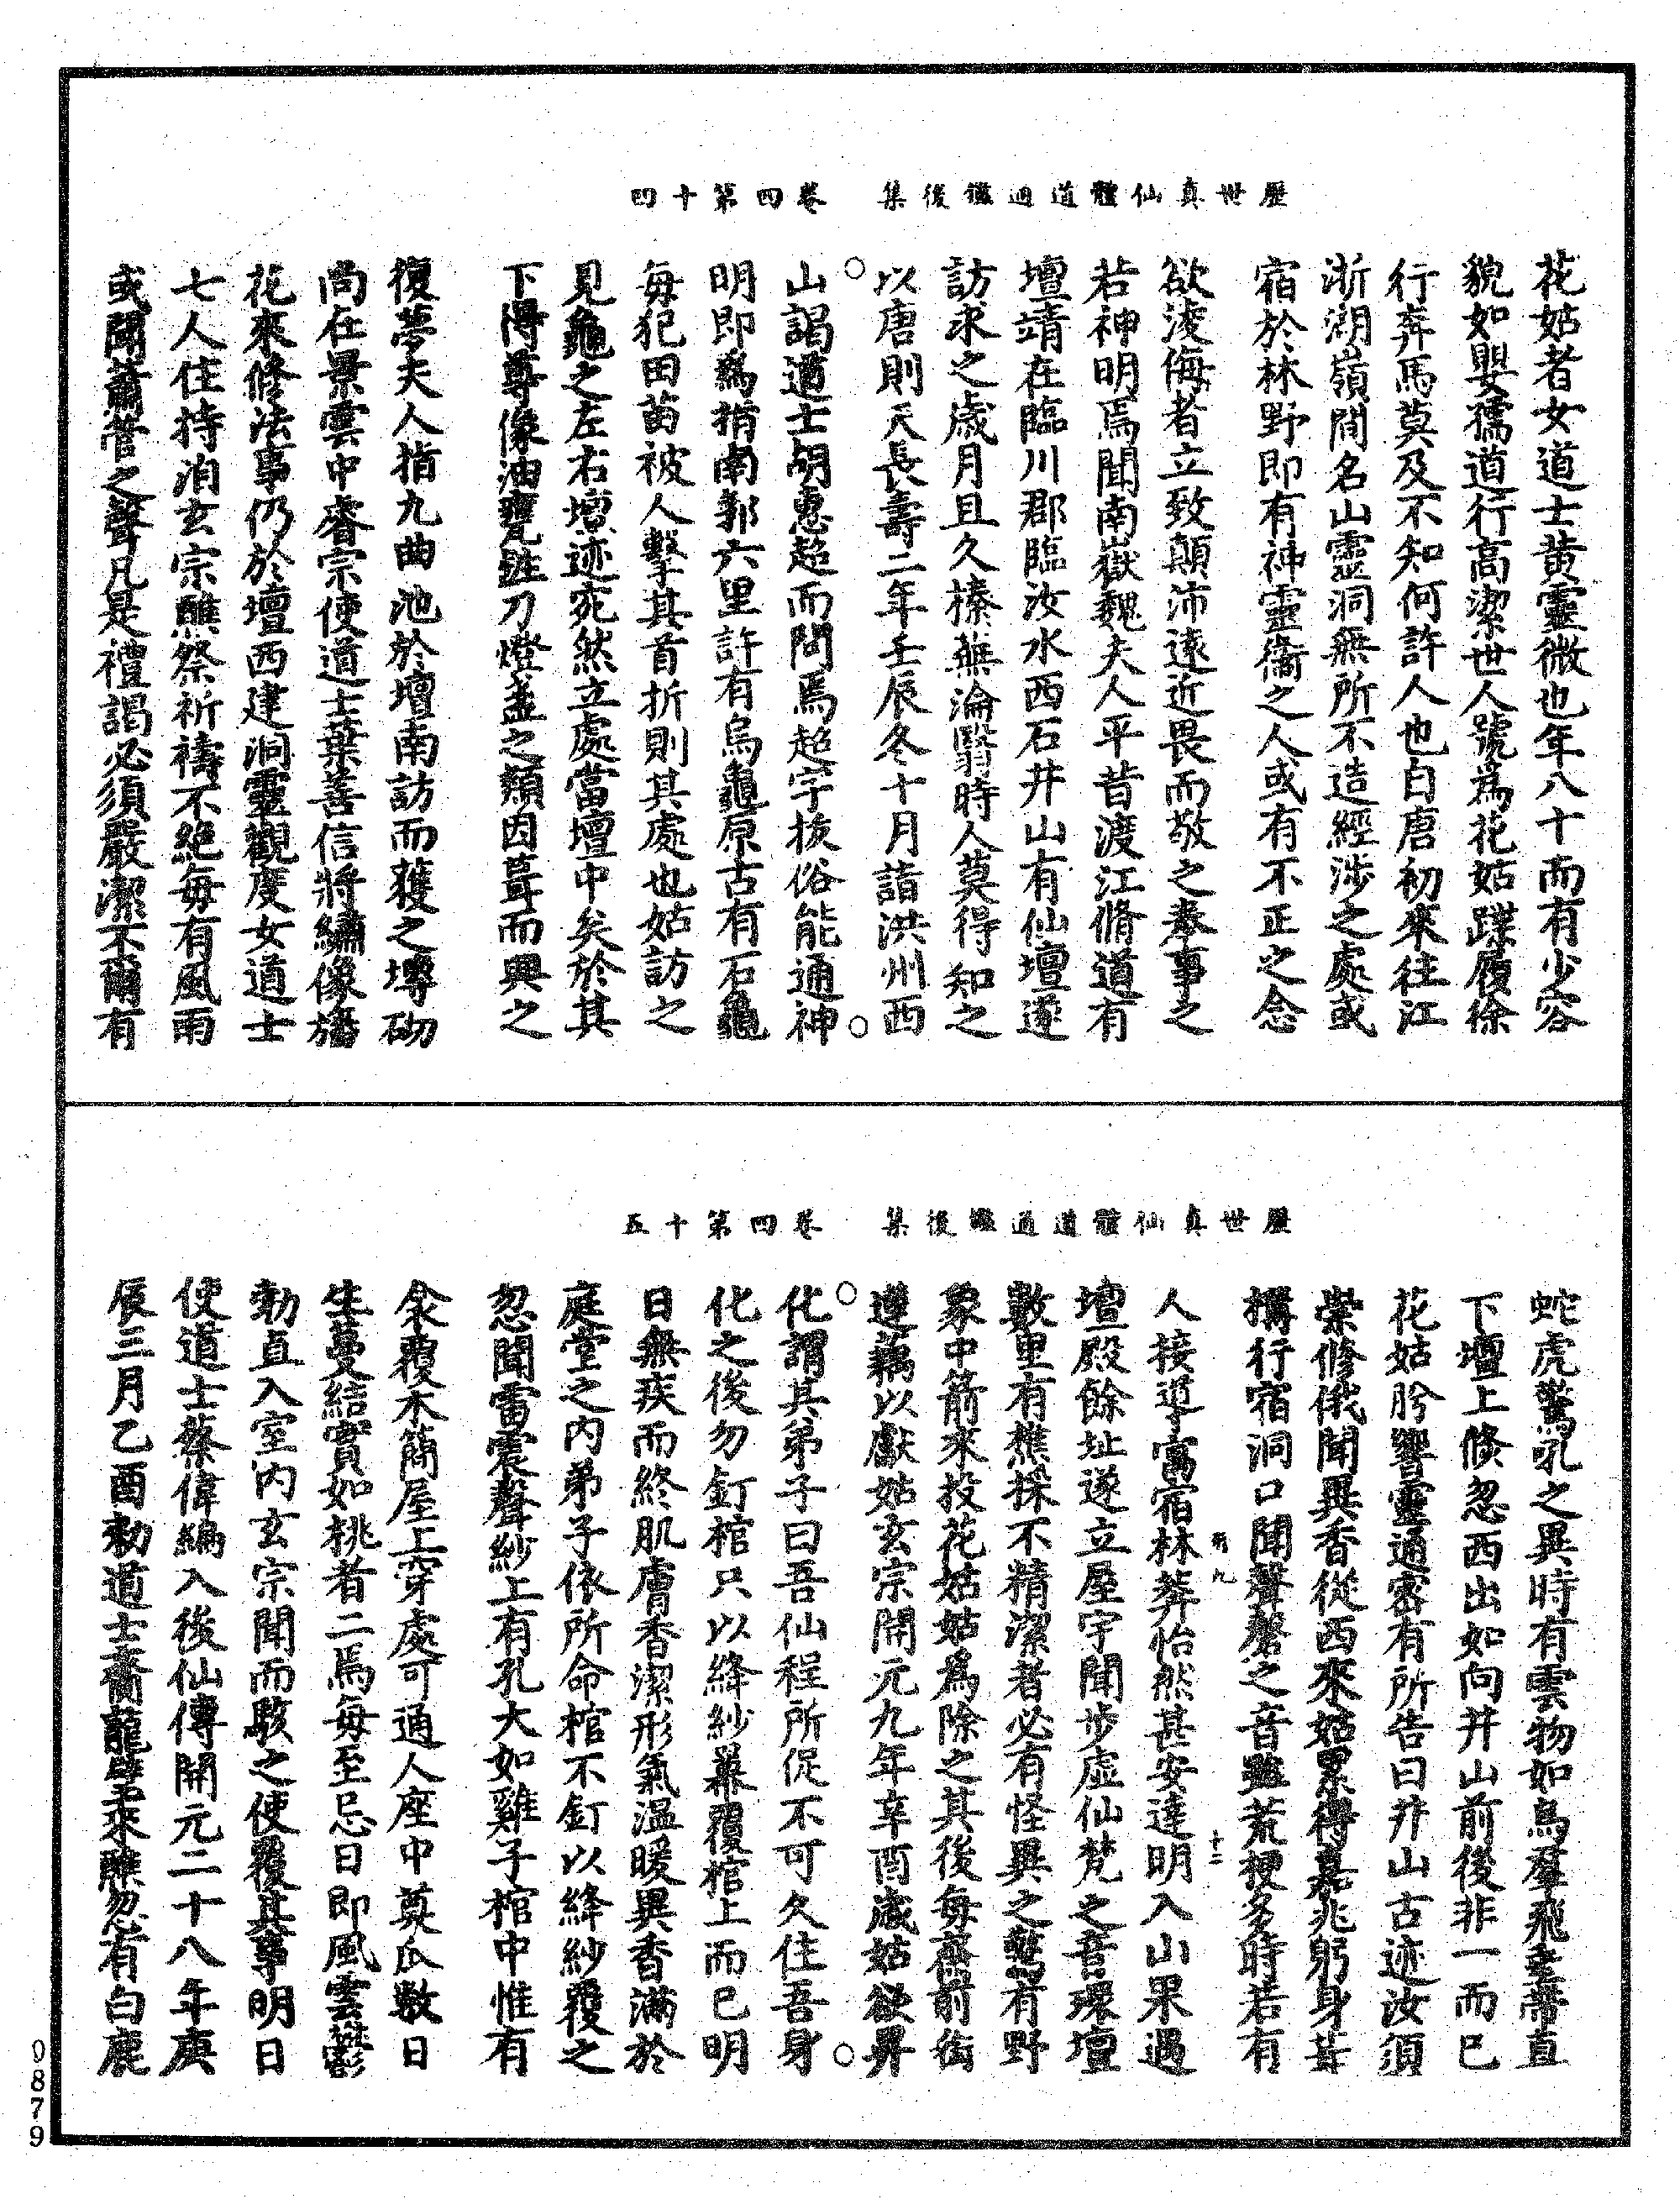 歷世真仙體道通鑑後集　卷四第十四
花姑者女道士黃靈微也年八十而有少容
貌如嬰孺道行高潔世人號為花姑躡履徐
行奔馬莫及不知何許人也自唐初來往江
浙湖嶺間名山靈洞無所不造經涉之處或
宿於林野即有神靈衞之人或有不正之念
欲淩侮者立致顛沛遠近畏而敬之奉事之
若神明焉聞南嶽魏夫人平昔渡江脩道有
壇靖在臨川郡臨汝水西石井山有仙壇遂
訪求之歲月且久榛蕪淪翳時人莫得知之
以唐則天長壽二年壬辰冬十月詣洪州西
山謁道士胡惠超而問焉超字拔俗能通神
明即為指南郭六里許有烏龜原古有石龜
每犯田苗被人擊其首折則其處也姑訪之
見龜之左右壇迹宛然立處當壇中矣於其
下得尊像油甕鎚刀燈盞之類因葺而興之
復夢夫人指九曲池於壇南訪而獲之塼砌
尚在景雲中睿宗使道士葉善信將繡像旛
花來修法事仍於壇西建洞靈觀度女道士
七人住持洎玄宗醮祭祈禱不絕每有風雨
或聞簫管之聲凡是禮謁必須嚴潔不爾有
歷世真仙體道通鑑後集　卷四第十五
蛇虎驚吼之異時有雲物如鳥羣飛垂帶直
下壇上倏忽西出如向井山前後非一而已
花姑肸響靈通密有所告曰井山古迹汝須
崇修俄聞異香從西來姑累得嘉兆躬身葺
搆行宿洞口聞聲磬之音雖荒梗多時若有
人接導寓宿林莽怡然甚安達明入山果遇
壇殿餘址遂立屋宇聞步虛仙梵之音環壇
數里有樵採不精潔者必有怪異之驚有野
象中箭來投花姑姑為除之其後每齋前銜
蓮藕以獻姑玄宗開元九年辛酉歲姑欲昇
化謂其弟子曰吾仙程所促不可久住吾身
化之後勿釘棺只以絳紗羃覆棺上而已明
日無疾而終肌膚香潔形氣溫暖異香滿於
庭堂之內弟子依所命棺不釘以絳紗覆之
忽聞雷震聲紗上有孔大如雞子棺中惟有
衾覆木簡屋上穿處可通人座中奠瓜數日
生蔓結實如桃者二焉每至忌日即風雲鬱
勃直入室內玄宗聞而駭之使覆其事明日
使道士蔡偉編入後仙傳開元二十八年庚
辰三月乙酉勑道士齎龍璧來醮忽有白鹿
0879